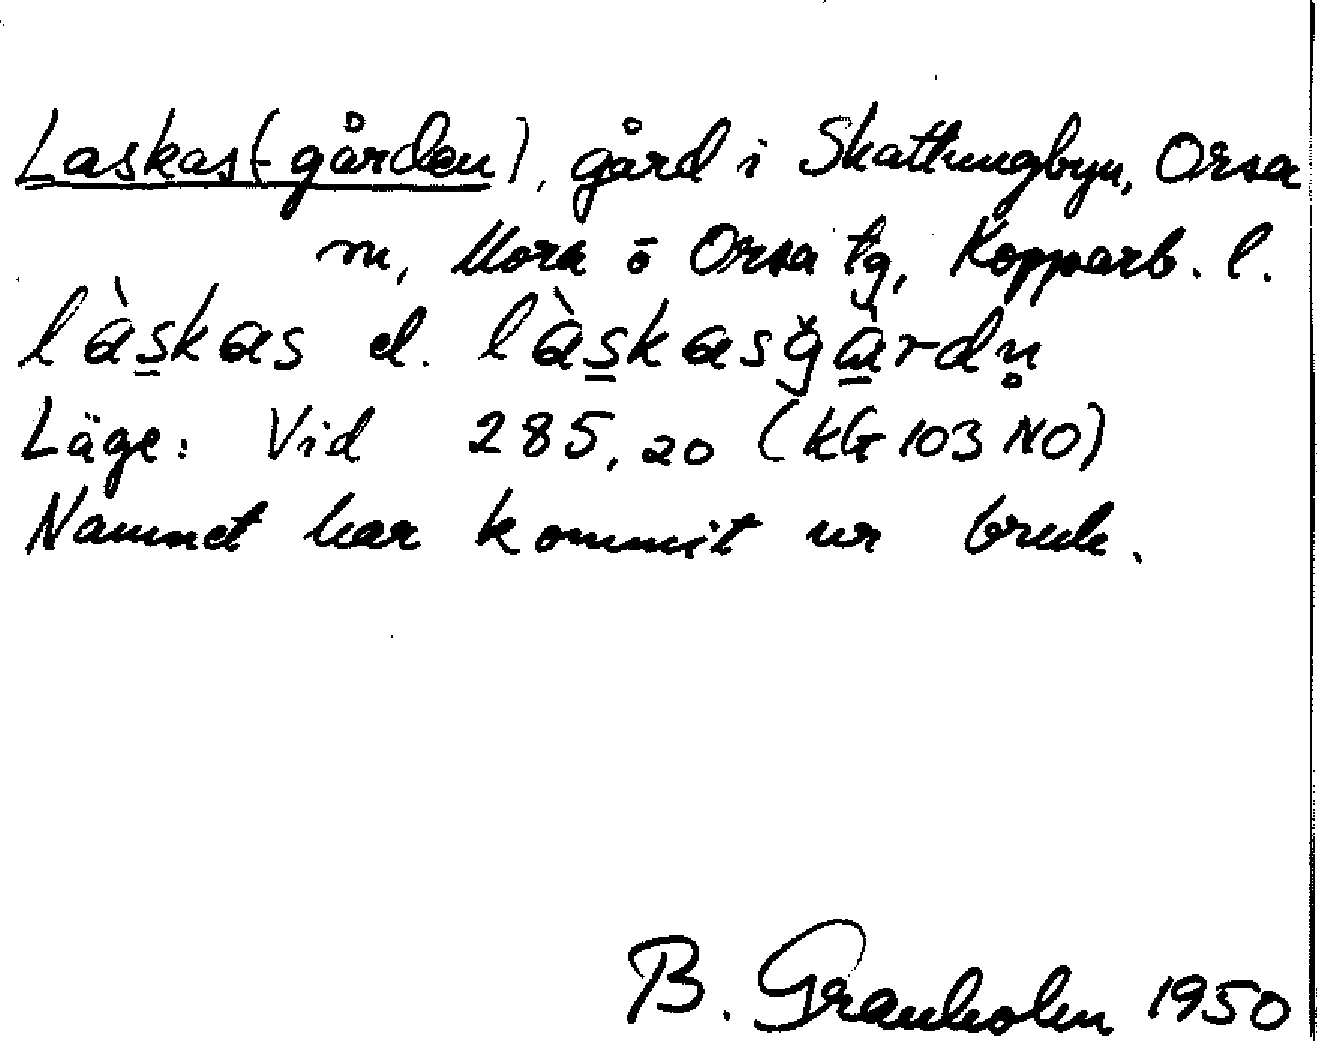 Laskas(-gården), gård i Skattungbyn, Orsa
sn, Mora o Orsa tg, Kopparb. l.
làs̲kas el. làs̲kasğà̲rdn̥
Läge: Vid 285,20 (KG 103 NO)
Namnet har kommit ur bruk.
B. Granholm 1950